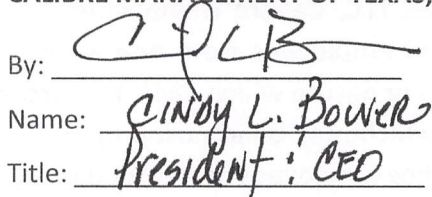 CALIBRE MANAGEMENT OF TEXAS,
By:
Name: CINDY L. BOWER
Title: President & CEO